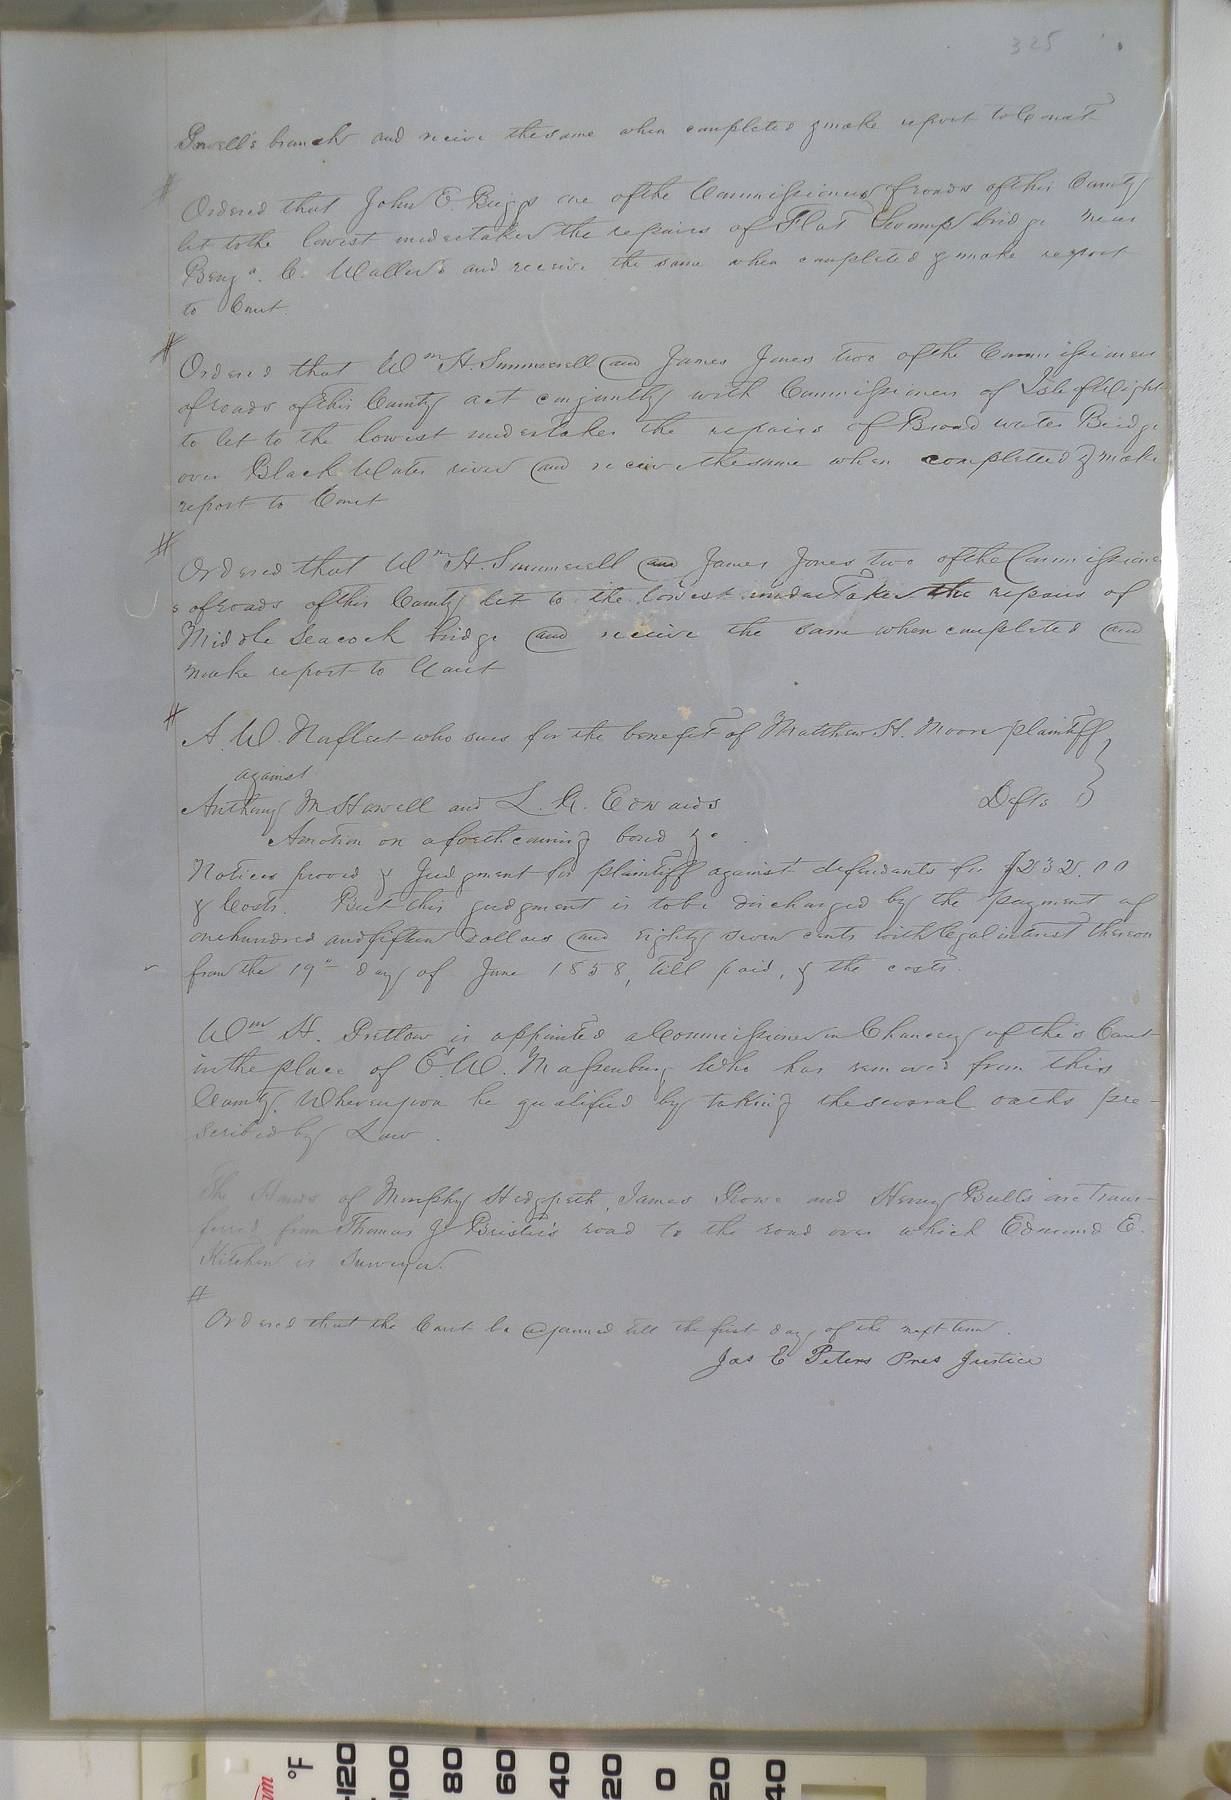 325
Powell's branch and receive the same when completed & make report to Court
# Ordered that John E. Biggs one of the Commissioners of roads of this County
let to the lowest undertaker the repairs of Flat Swamp bridge near
Benja. C. Waller's and receive the same when completed & make report
to Court.
# Ordered that Wm H. Summerell and James Jones two of the Commissioners
of roads of this County act conjointly with Commissioners of Isle of Wight
to let to the lowest undertaker the repairs of Broad water Bridge
over Black Water river and receive the same when completed & make
report to Court
# Ordered that Wm H. Summerell and James Jones two of the Commissione
s of roads of this County let to the lowest undertaker the repairs of
Middle Seacock bridge and receive the same when completed and
make report to Court
# A. W. Norfleet who sues for the benefit of Matthew H. Moore plaintiff
against
Anthony M Howell and L. R. Edwards Defts
A motion on a forthcoming bond &c.
Notices proved & Judgment for plaintiff against defendants for $232.00
& Costs. But this judgment is to be discharged by the payment of
one hundred and fifteen Dollars and eighty seven cents with legal interest thereon
from the 19" day of June 1858, till paid, & the costs.
Wm H. Pretlow is appointed a Commissioner in Chancery of this Court
in the place of C. W. Massenburg who has removed from this
County. Whereupon he qualified by taking the several oaths pre-
scribed by Law.
The Hands of Murphy Hedgpeth, James Rowe and Henry Bulls are trans-
ferred from Thomas J. Brister's road to the road over which Edmund E.
Kitchen is Surveyor.
# Ordered that the Court be adjourned till the first day of the next term.
Jas E Peters Pres Justice
°F
120
100
80
60
40
20
0
20
40